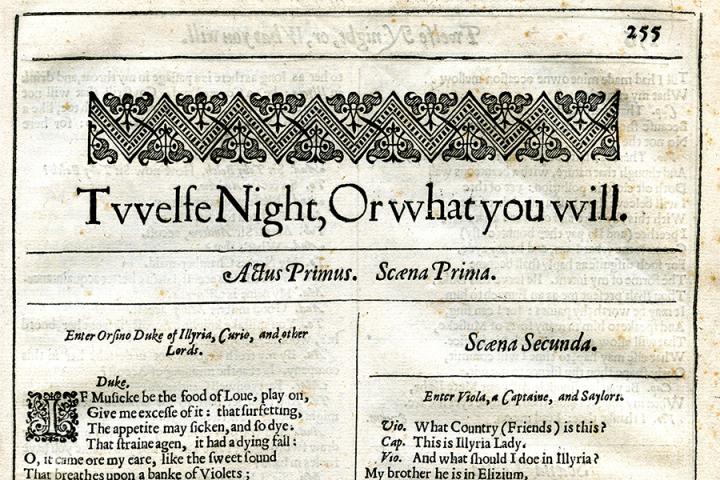 255
Tvvelfe Night, Or vvhat you vvill.
Actus Primus. Scæna Prima.
Enter Orſino Duke of Illyria, Curio, and other
Lords.
Duke.
IF Muſicke be the food of Loue, play on,
Giue me exceſſe of it: that ſurfetting,
The appetite may ſicken, and ſo dye.
That ſtraine agen, it had a dying fall:
O, it came ore my eare, like the ſweet ſound
That breathes vpon a banke of Violets;
Scæna Secunda.
Enter Viola, a Captaine, and Saylors.
Vio. What Country (Friends) is this?
Cap. This is Illyria Ladie.
Vio. And what ſhould I doe in Illyria?
My brother he is in Elizium,